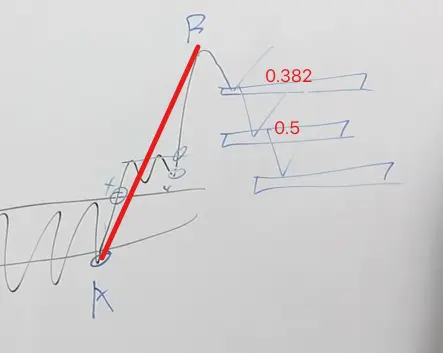 B
0.382
0.5
A